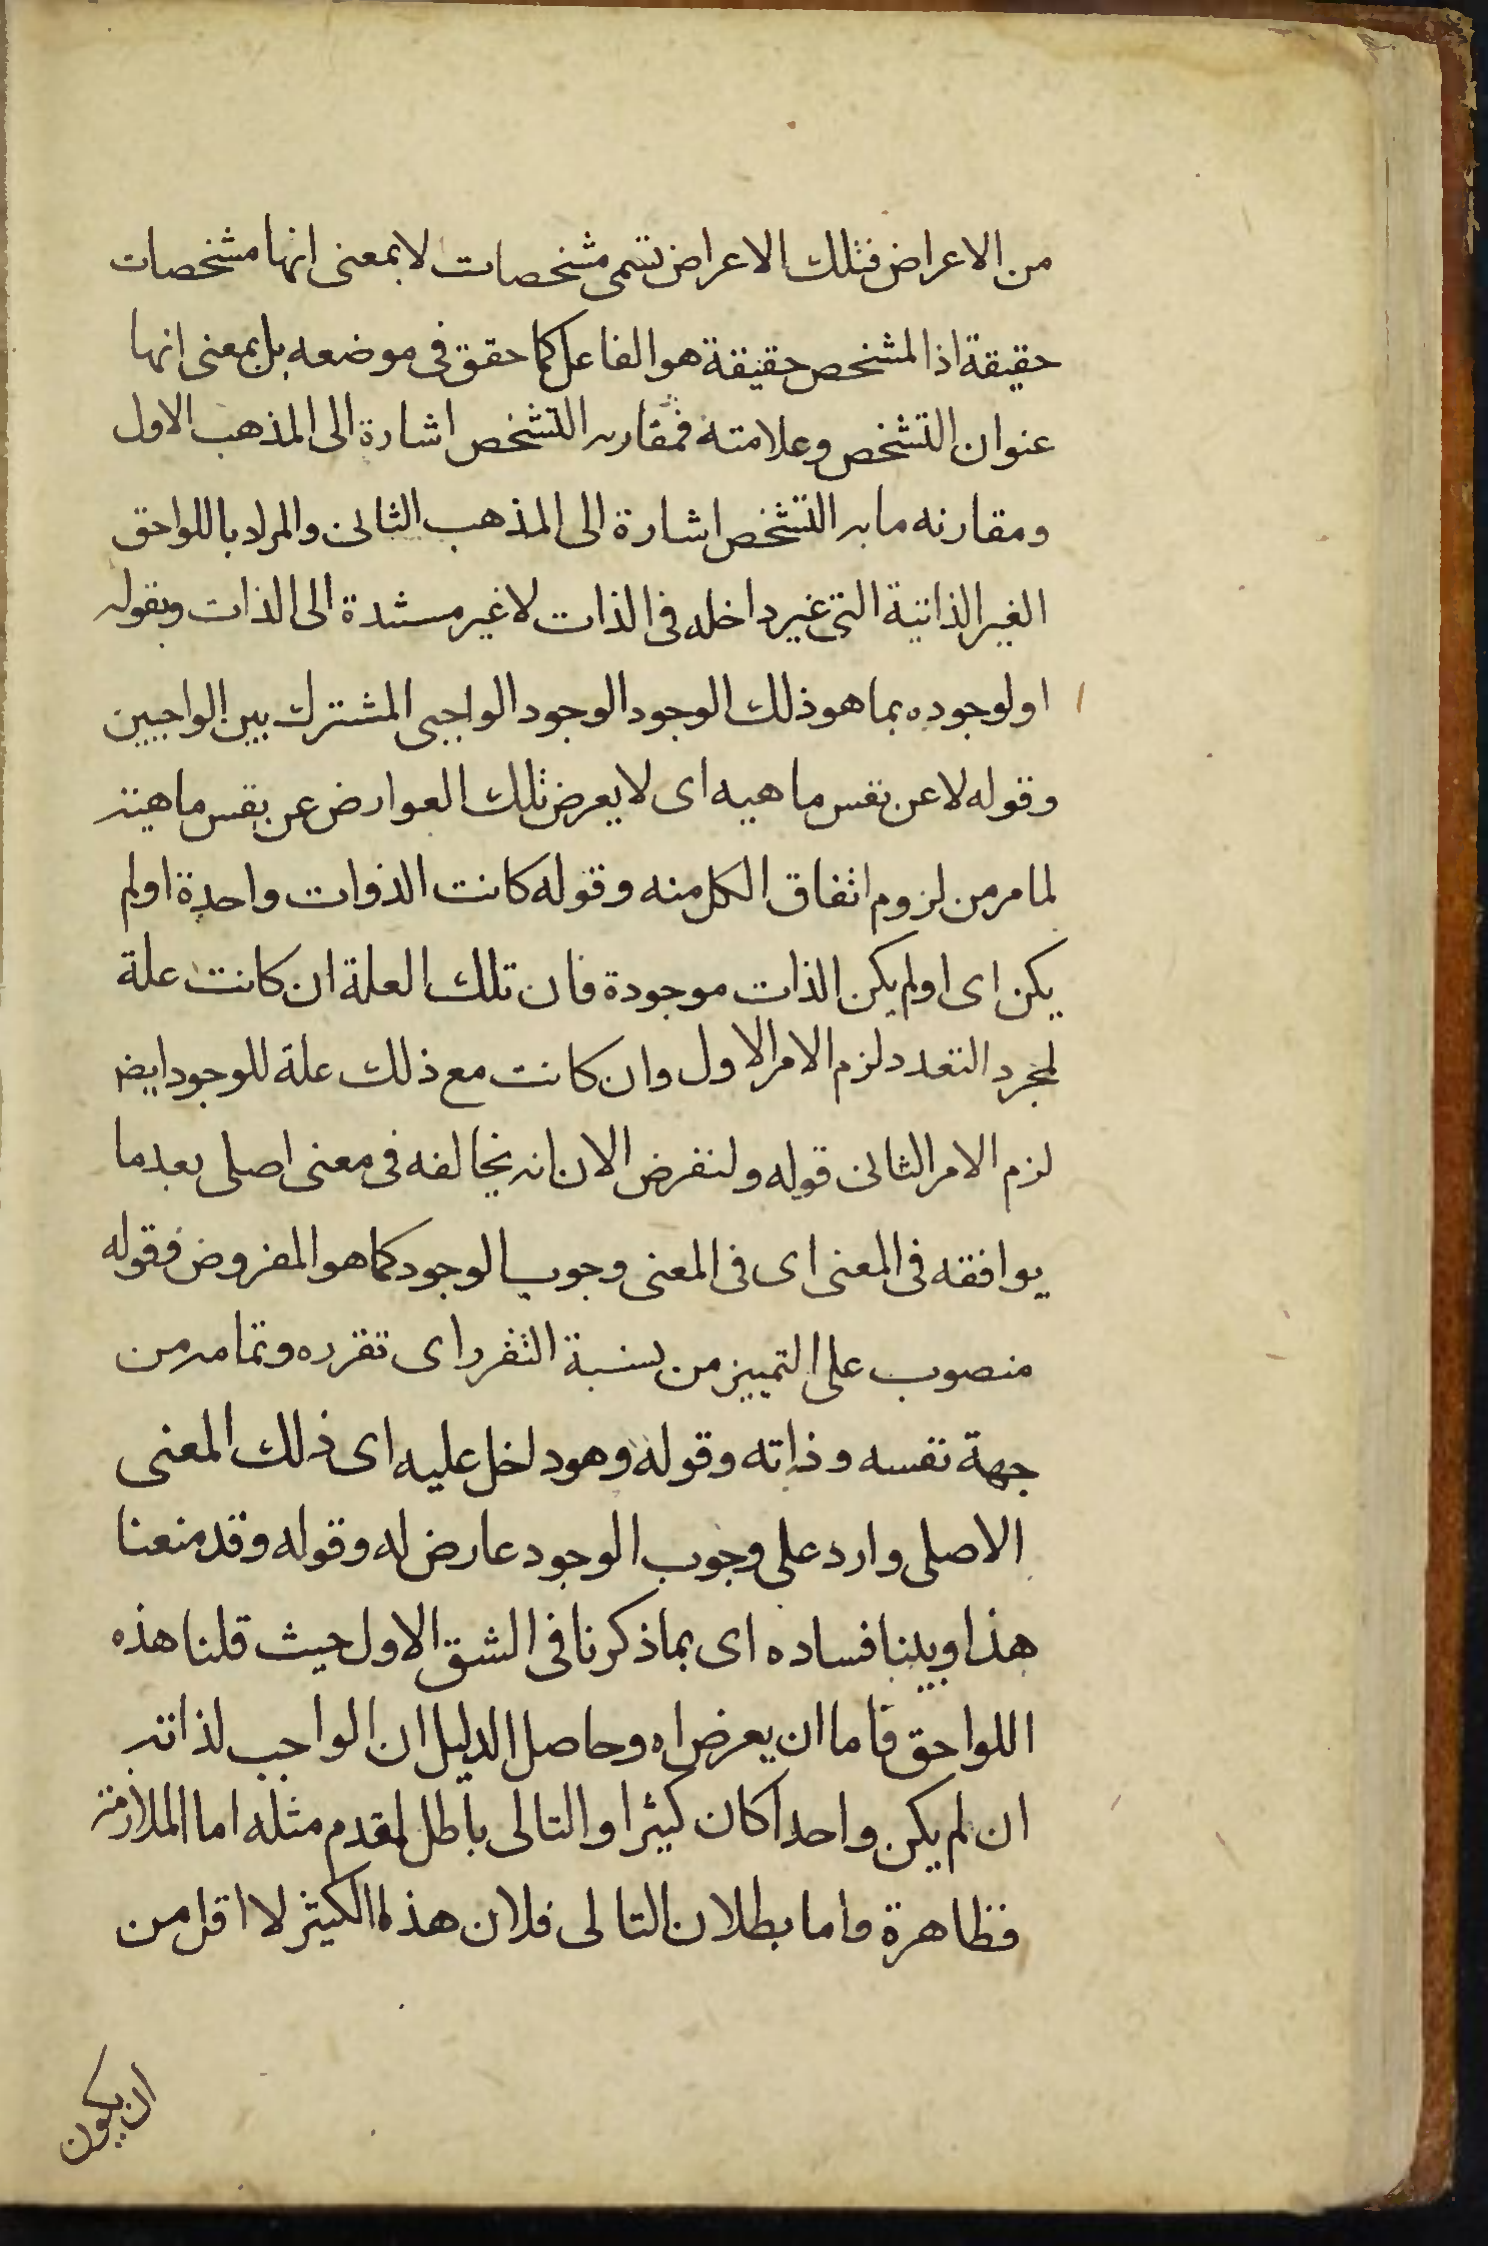 من الاعراض فتلك الاعراض تسمى مشخصات لا بمعنى انها مشخصات
حقيقة اذ المشخص حقيقة هو الفاعل كما حقق فى موضعه بل بمعنى انها
عنوان التشخص وعلامته فمقارنه التشخص اشارة الى المذهب الاول
ومقارنه ما به التشخص اشارة الى المذهب الثانى والمراد باللواحق
الغير الذاتية التى غير داخله فى الذات لا غير مستندة الى الذات وبقوله
او لوجوده بما هو ذلك الوجود الوجود الواجبى المشترك بين الواجبين
وقوله لا عن نفس ماهيه اى لا يعرض تلك العوارض عن نفس ماهيته
لما مر من لزوم اتفاق الكل منه وقوله كانت الذوات واحدة او لم
يكن اى او لم يكن الذات موجودة فان تلك العلة ان كانت علة
لمجرد التعدد لزم الامر الاول وان كانت مع ذلك علة للوجود ايض
لزم الامر الثانى قوله ولنفرض الان انه يخالفه فى معنى اصلى بعد ما
يوافقه فى المعنى اى فى المعنى وجوب الوجود كما هو المفروض فقوله
منصوب على التمييز من نسبة التقرر اى تقرره وتمامه من
جهة نفسه وذاته وقوله وهو داخل عليه اى ذلك المعنى
الاصلى وارد على وجوب الوجود عارض له وقوله وقد منعنا
هذا وبينا فساده اى بما ذكرنا فى الشق الاول حيث قلنا هذه
اللواحق فاما ان يعرض اه وحاصل الدليل ان الواجب لذاته
ان لم يكن واحدا كان كثيرا والتالى باطل لمقدم مثله اما الملازمة
فظاهرة واما بطلان التالى فلان هذه الكثير لا اقل من
ان يكون